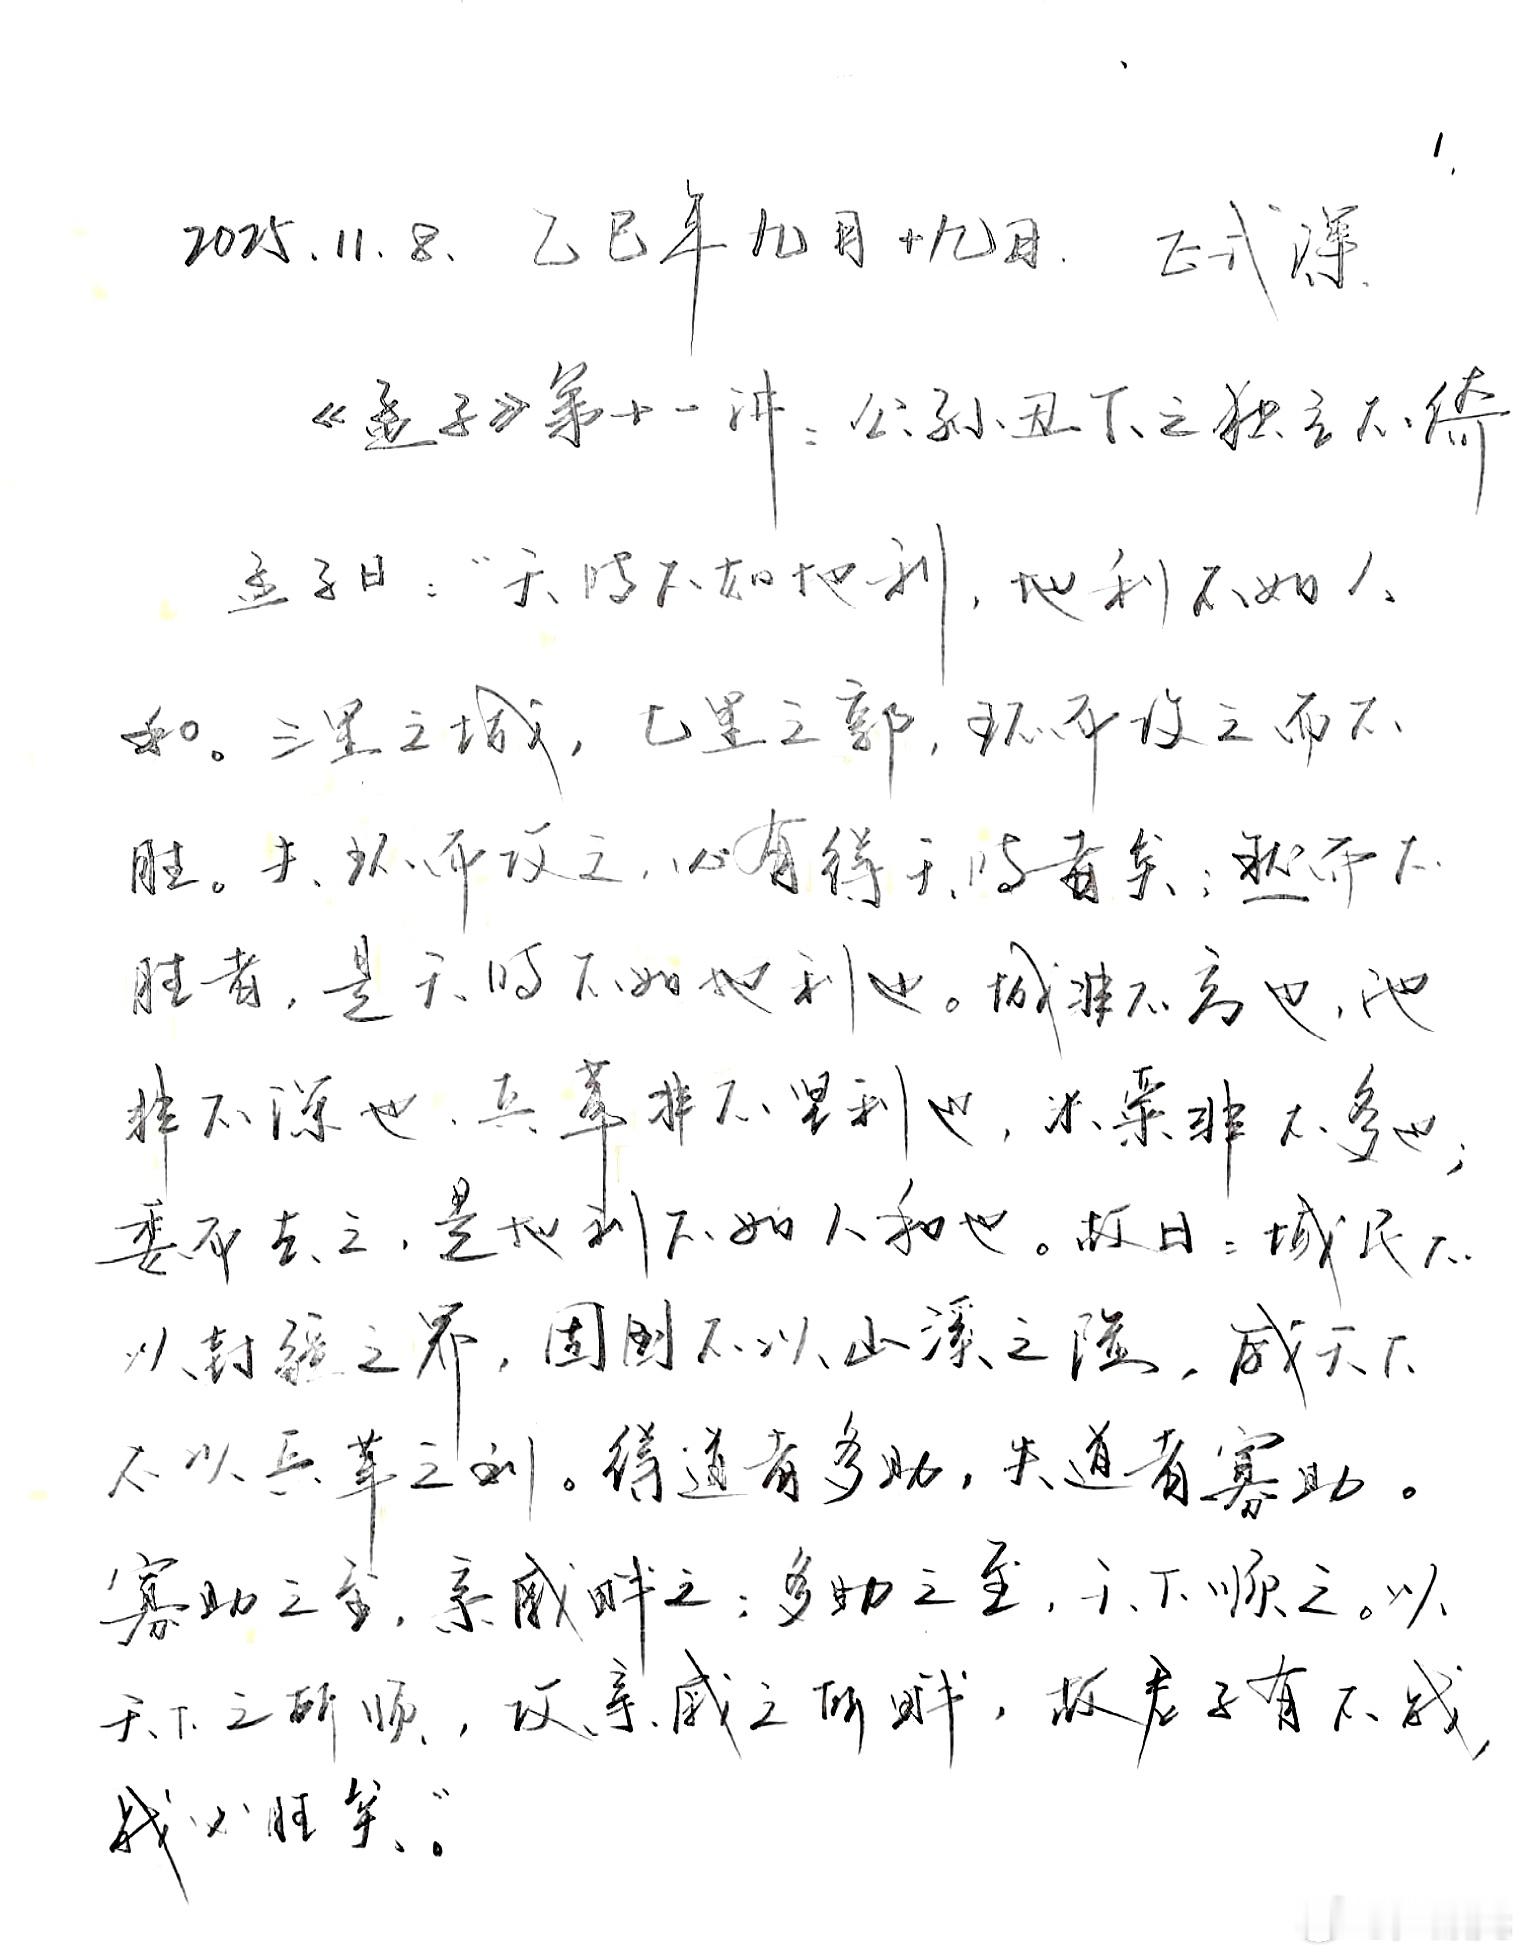 1.
2025.11.8. 乙巳年九月十九日. 正式课.
《孟子》第十一讲：公孙丑下之独立不倚
孟子曰："天时不如地利，地利不如人
和。三里之城，七里之郭，环而攻之而不
胜。夫环而攻之，必有得天时者矣；然而不
胜者，是天时不如地利也。城非不高也，池
非不深也，兵革非不坚利也，米粟非不多也；
委而去之，是地利不如人和也。故曰：域民不
以封疆之界，固国不以山溪之险，威天下
不以兵革之利。得道者多助，失道者寡助。
寡助之至，亲戚畔之；多助之至，天下顺之。以
天下之所顺，攻亲戚之所畔，故君子有不战，
战必胜矣。"